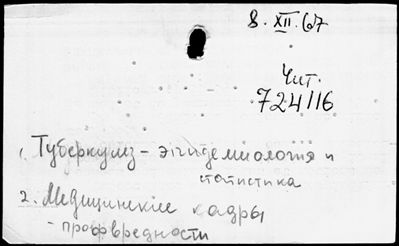 8. XII. 67
Чит.
724116
1. Туберкулёз - эпидемиология и
статистика
2. Медицинские кадры
- профвредности